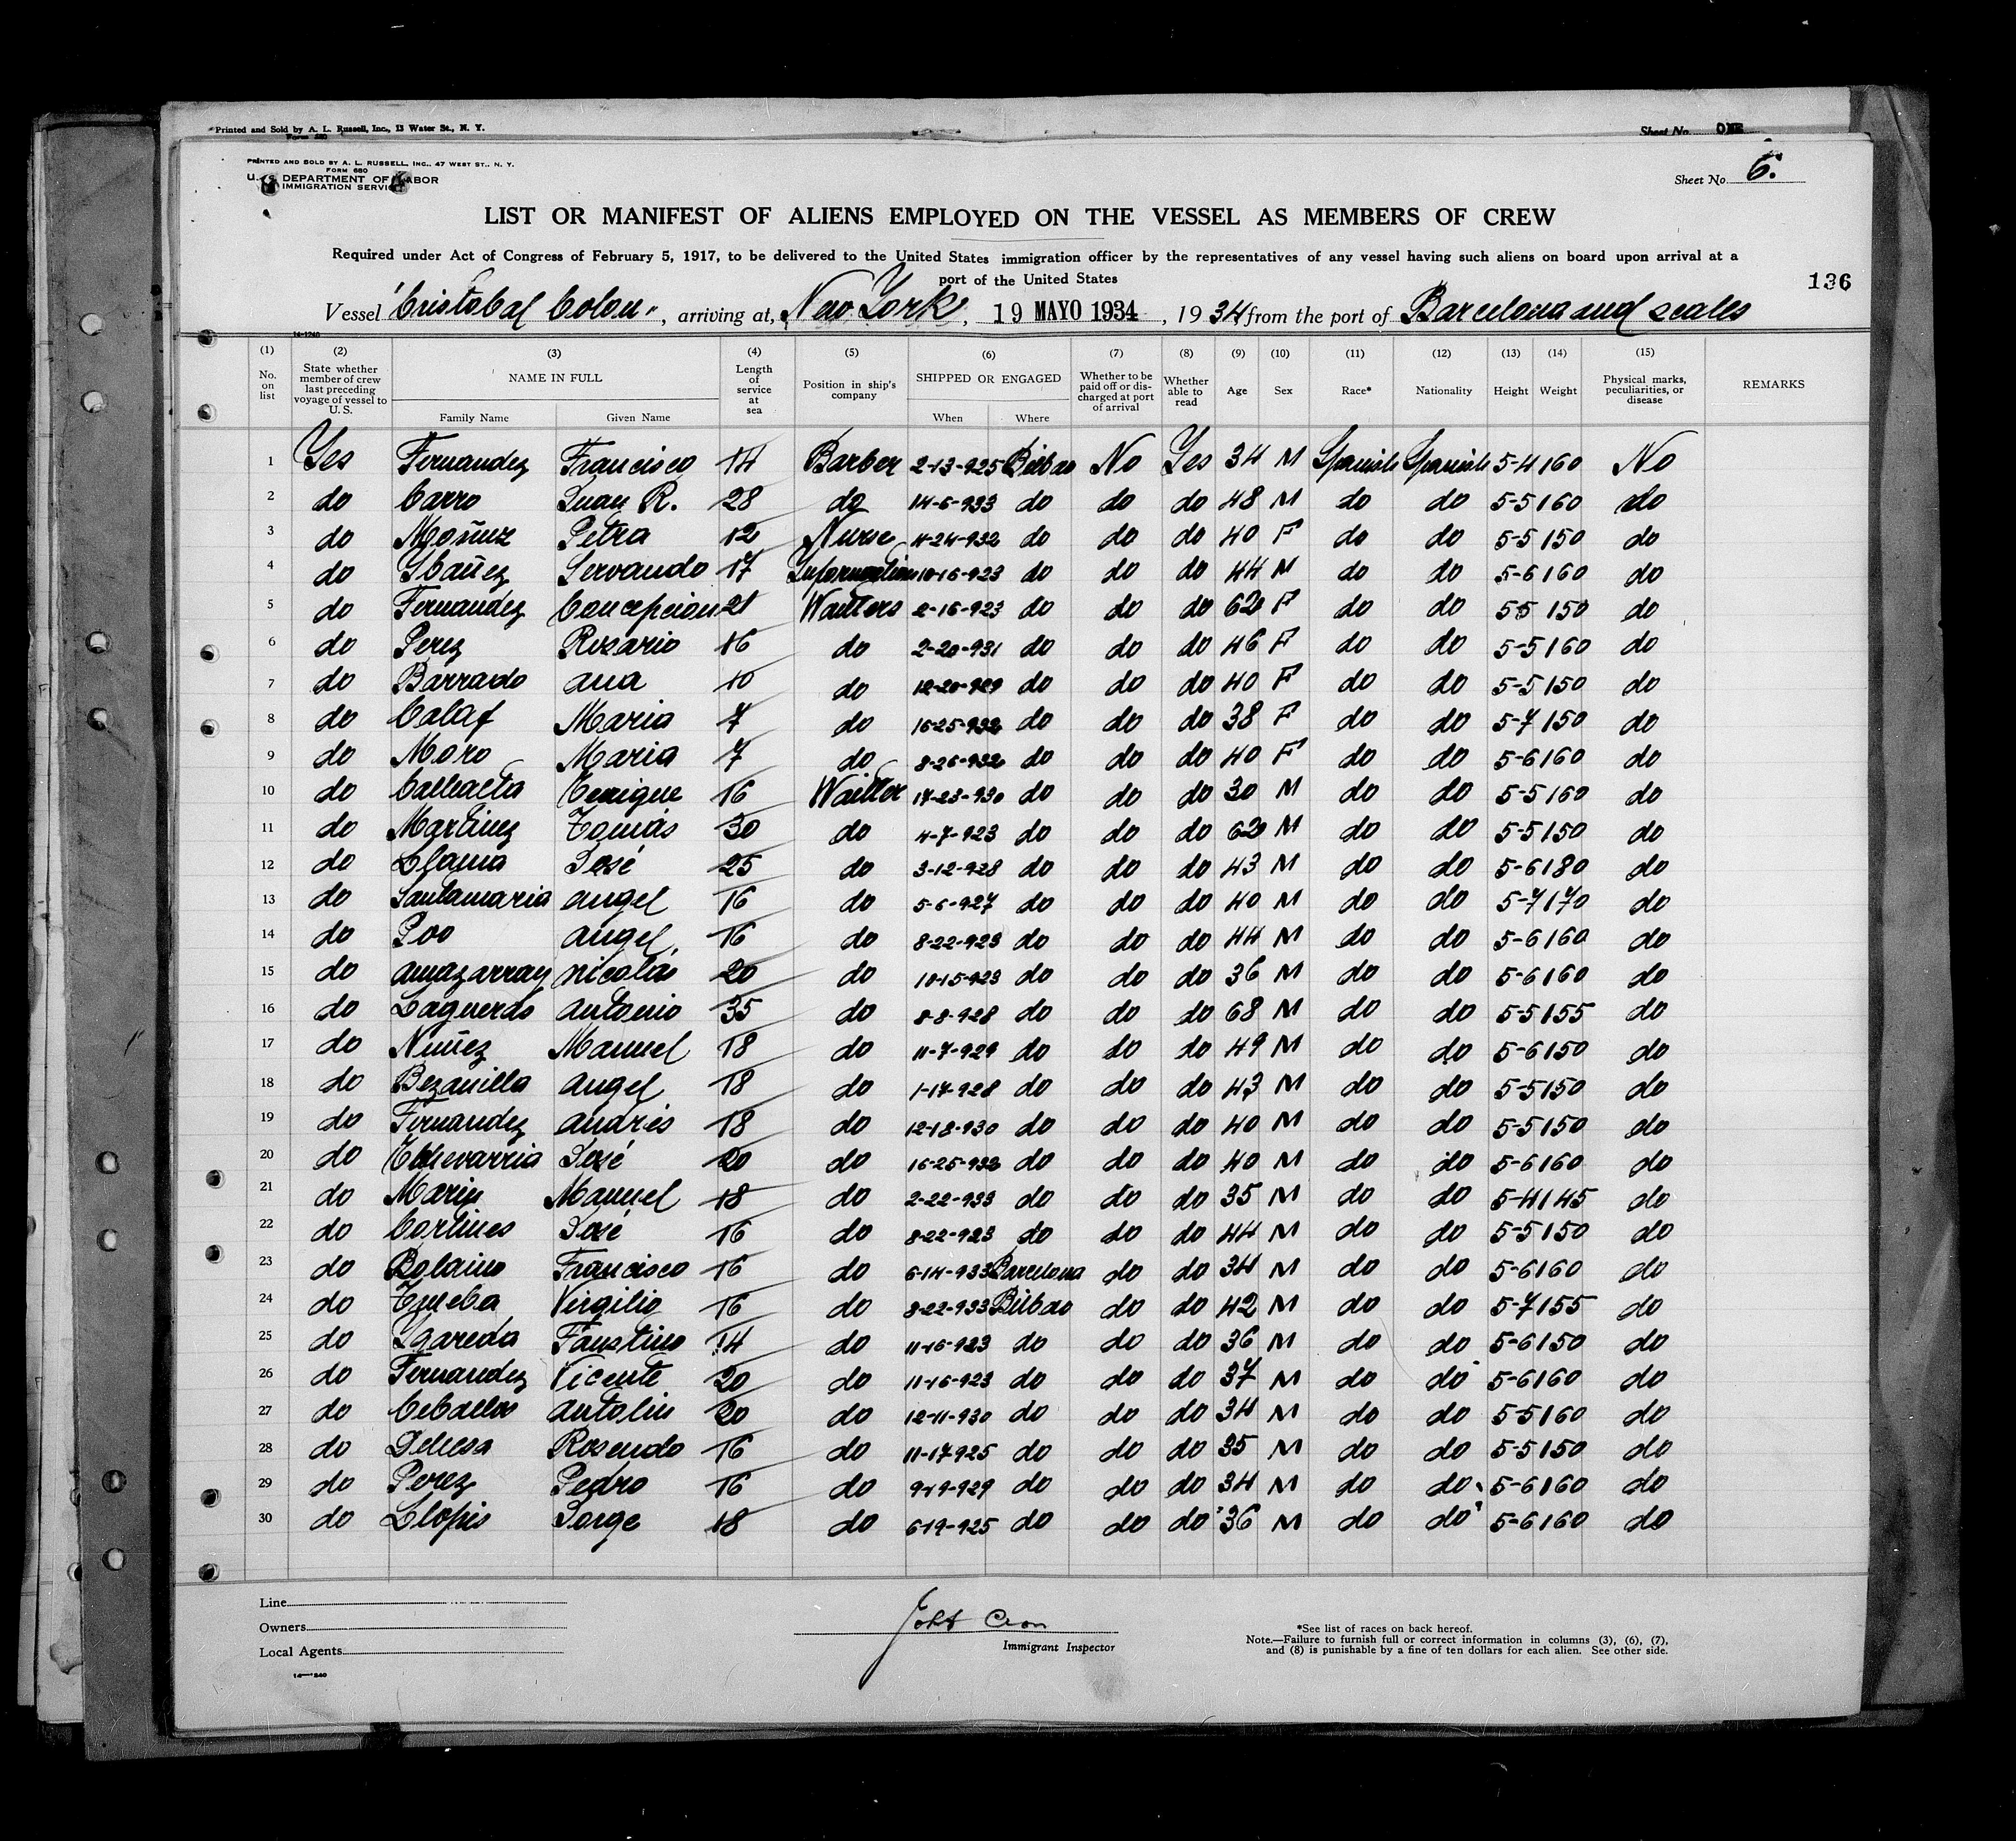 Printed and Sold by A. L. Russell, Inc., 13 Water St., N. Y.
Form 680
Sheet No. ONE
PRINTED AND SOLD BY A. L. RUSSELL, INC., 47 WEST ST., N. Y.
FORM 680
U. S. DEPARTMENT OF LABOR
IMMIGRATION SERVICE
Sheet No. 6.
LIST OR MANIFEST OF ALIENS EMPLOYED ON THE VESSEL AS MEMBERS OF CREW
Required under Act of Congress of February 5, 1917, to be delivered to the United States immigration officer by the representatives of any vessel having such aliens on board upon arrival at a
port of the United States
136
Vessel "Cristobal Colon", arriving at, New York, 19 MAYO 1934, 1934 from the port of Barcelona and scales
14-1240
(1) No. on list (2) State whether member of crew last preceding voyage of vessel to U. S. (3) NAME IN FULL Family Name Given Name (4) Length of service at sea (5) Position in ship's company (6) SHIPPED OR ENGAGED When Where (7) Whether to be paid off or discharged at port of arrival (8) Whether able to read (9) Age (10) Sex (11) Race* (12) Nationality (13) Height (14) Weight (15) Physical marks, peculiarities, or disease REMARKS
1 Yes Fernandez Francisco 14 Barber 2-13-925 Bilbao No Yes 34 M Spanish Spanish 5-4 160 No
2 do Carro Juan R. 28 do 14-6-933 do do do 48 M do do 5-5 160 do
3 do Moñuz Petra 12 Nurse 4-24-932 do do do 40 F do do 5-5 150 do
4 do Ibañez Servando 17 Information 10-16-923 do do do 44 M do do 5-6 160 do
5 do Fernandez Concepcion 21 Waitters 2-16-923 do do do 62 F do do 55 150 do
6 do Perez Rosario 16 do 2-20-931 do do do 46 F do do 5-5 160 do
7 do Barrado ana 10 do 12-20-929 do do do 40 F do do 5-5 150 do
8 do Calaf Maria 7 do 16-25-932 do do do 38 F do do 5-7 150 do
9 do Moro Maria 7 do 8-26-932 do do do 40 F do do 5-6 160 do
10 do Enrique 16 Waitter 17-23-930 do do do 30 M do do 5-5 160 do
11 do Martinez Tomás 30 do 4-7-923 do do do 62 M do do 5-5 150 do
12 do Llama José 25 do 3-12-928 do do do 43 M do do 5-6 180 do
13 do Santamaria angel 16 do 5-6-927 do do do 40 M do do 5-7 170 do
14 do Poo angel 16 do 8-22-923 do do do 44 M do do 5-6 160 do
15 do amazarray nicolás 20 do 10-15-923 do do do 36 M do do 5-6 160 do
16 do Lagueras antonio 35 do 8-8-928 do do do 68 M do do 5-5 155 do
17 do Nuñez Manuel 18 do 11-7-929 do do do 49 M do do 5-6 150 do
18 do Bezanilla angel 18 do 1-17-928 do do do 43 M do do 5-5 150 do
19 do Fernandez andrés 18 do 12-18-930 do do do 40 M do do 5-5 150 do
20 do Echevarria José 20 do 16-25-932 do do do 40 M do do 5-6 160 do
21 do Marin Manuel 18 do 2-22-933 do do do 35 M do do 5-4 145 do
22 do Cortines José 16 do 8-22-923 do do do 44 M do do 5-5 150 do
23 do Bolaino Francisco 16 do 6-14-933 Barcelona do do 34 M do do 5-6 160 do
24 do Trueba Virgilio 16 do 8-22-933 Bilbao do do 42 M do do 5-7 155 do
25 do Igareda Faustino 14 do 11-16-923 do do do 36 M do do 5-6 150 do
26 do Fernandez Vicente 20 do 11-16-923 do do do 37 M do do 5-6 160 do
27 do Ceballos antolin 20 do 12-11-930 do do do 34 M do do 5-5 160 do
28 do Dehesa Rosendo 16 do 11-17-925 do do do 35 M do do 5-5 150 do
29 do Perez Pedro 16 do 9-19-929 do do do 34 M do do 5-6 160 do
30 do Llopis Jorge 18 do 6-19-925 do do do 36 M do do 5-6 160 do
Line
Owners
Local Agents
14-1240
Immigrant Inspector
*See list of races on back hereof.
Note.—Failure to furnish full or correct information in columns (3), (6), (7),
and (8) is punishable by a fine of ten dollars for each alien. See other side.